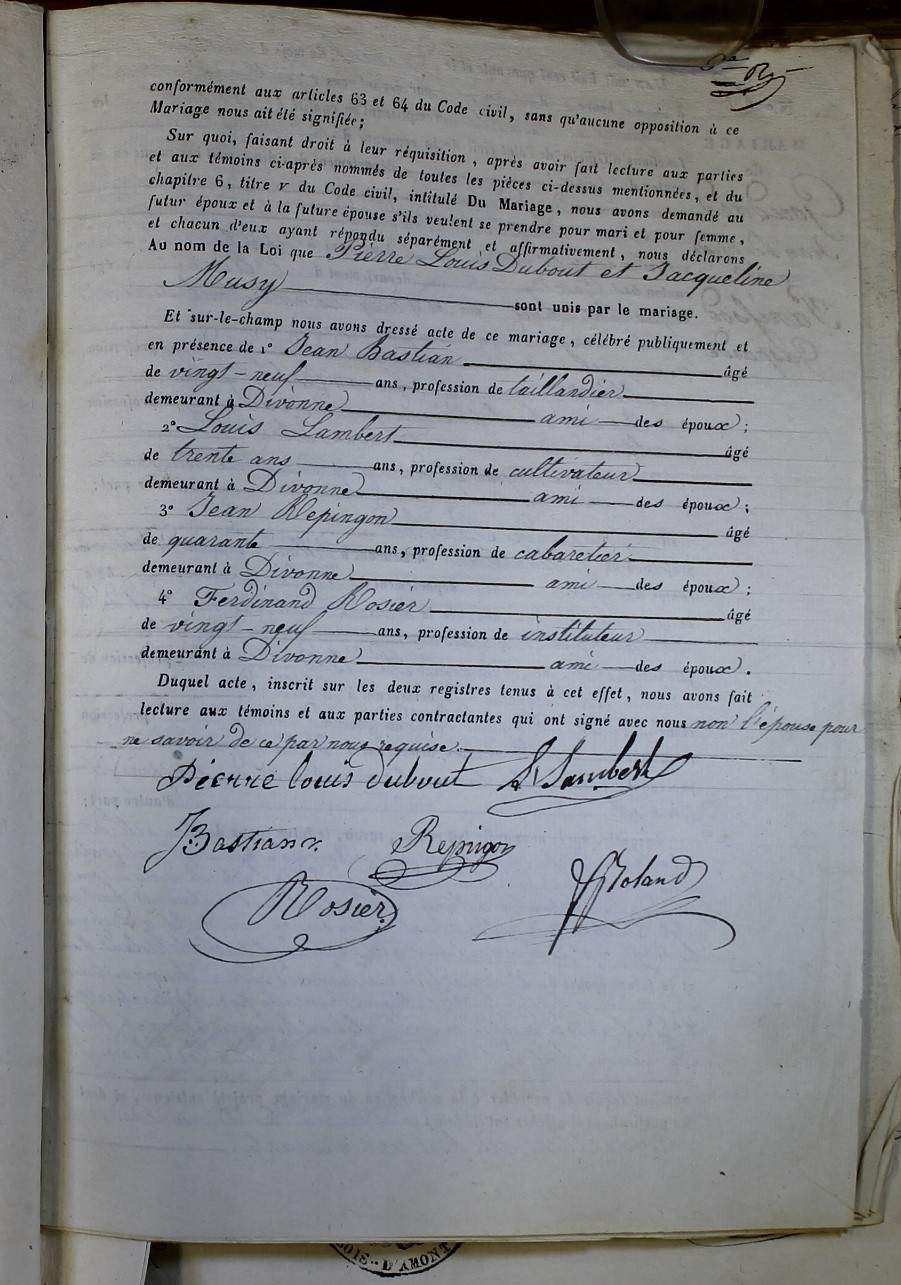 conformément aux articles 63 et 64 du Code civil, sans qu'aucune opposition à ce
Mariage nous ait été signifiée;
Sur quoi, faisant droit à leur réquisition, après avoir fait lecture aux parties
et aux témoins ci-après nommés de toutes les pièces ci-dessus mentionnées, et du
chapitre 6, titre v du Code civil, intitulé Du Mariage, nous avons demandé au
futur époux et à la future épouse s'ils veulent se prendre pour mari et pour femme,
et chacun d'eux ayant répondu séparément et affirmativement, nous déclarons
Au nom de la Loi que Pierre Louis Dubout et Jacqueline
Musy sont unis par le mariage.
Et sur-le-champ nous avons dressé acte de ce mariage, célébré publiquement et
en présence de 1° Jean Bastian âgé
de vingt-neuf ans, profession de taillandier
demeurant à Divonne ami des époux;
2° Louis Lambert âgé
de trente ans ans, profession de cultivateur
demeurant à Divonne ami des époux;
3° Jean Repingon âgé
de quarante ans, profession de cabaretier
demeurant à Divonne ami des époux;
4° Ferdinand Rosier âgé
de vingt-neuf ans, profession de instituteur
demeurant à Divonne ami des époux.
Duquel acte, inscrit sur les deux registres tenus à cet effet, nous avons fait
lecture aux témoins et aux parties contractantes qui ont signé avec nous non l'épouse pour
ne savoir de ce par nous requise.
Pierre Louis Dubout L Lambert
J Bastian Repingon
Rosier Roland